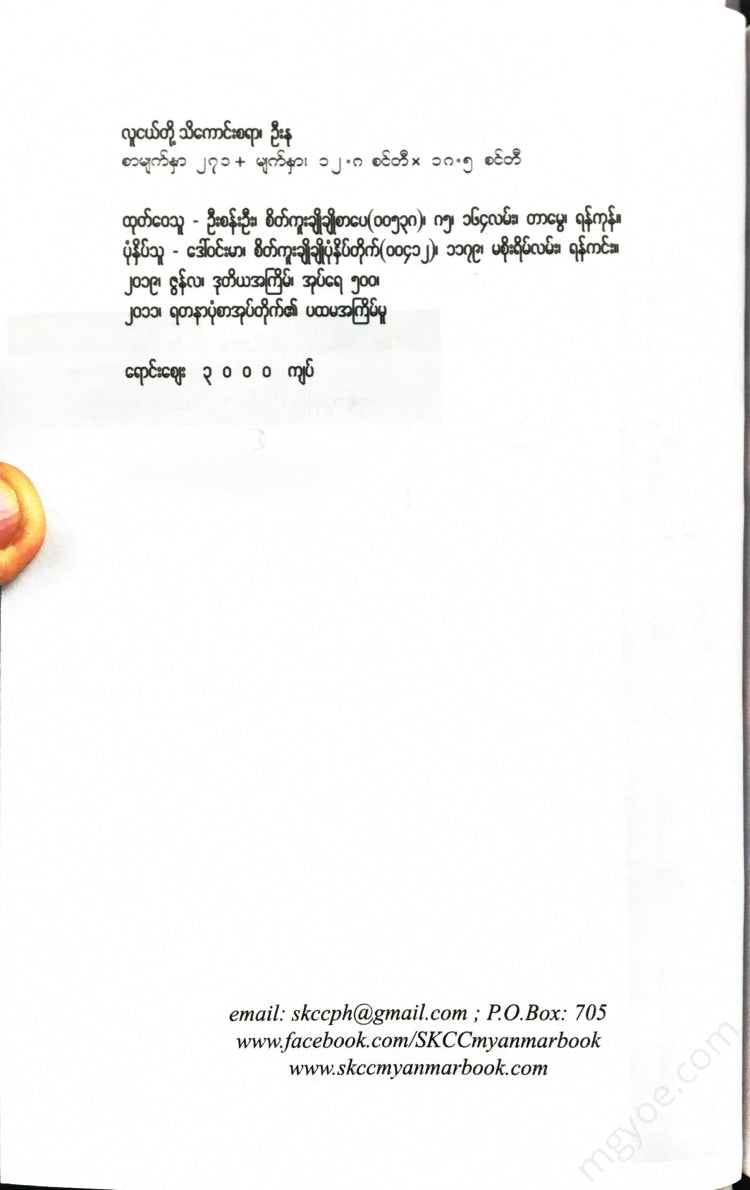 လူငယ်တို့ သိကောင်းစရာ၊ ဦးနု
စာမျက်နှာ ၂၇၁ + မျက်နှာ၊ ၁၂.၈ စင်တီ × ၁၈.၅ စင်တီ
ထုတ်ဝေသူ - ဦးစန်းဦး၊ စိတ်ကူးချိုချိုစာပေ(၀၀၅၃၈)၊ ၈၅၊ ၁၆၄လမ်း၊ တာမွေ၊ ရန်ကုန်။
ပုံနှိပ်သူ - ဒေါ်ဝင်းမာ၊ စိတ်ကူးချိုချိုပုံနှိပ်တိုက်(၀၀၄၁၂)၊ ၁၁၇၉၊ မစိုးရိမ်လမ်း၊ ရန်ကင်း။
၂၀၁၉၊ ဇွန်လ၊ ဒုတိယအကြိမ်၊ အုပ်ရေ ၅၀၀၊
၂၀၁၁၊ ရတနာပုံစာအုပ်တိုက်၏ ပထမအကြိမ်မူ
ရောင်းဈေး ၃ ၀ ၀ ၀ ကျပ်
email: skccph@gmail.com ; P.O.Box: 705
www.facebook.com/SKCCmyanmarbook
www.skccmyanmarbook.com
mgyoe.com